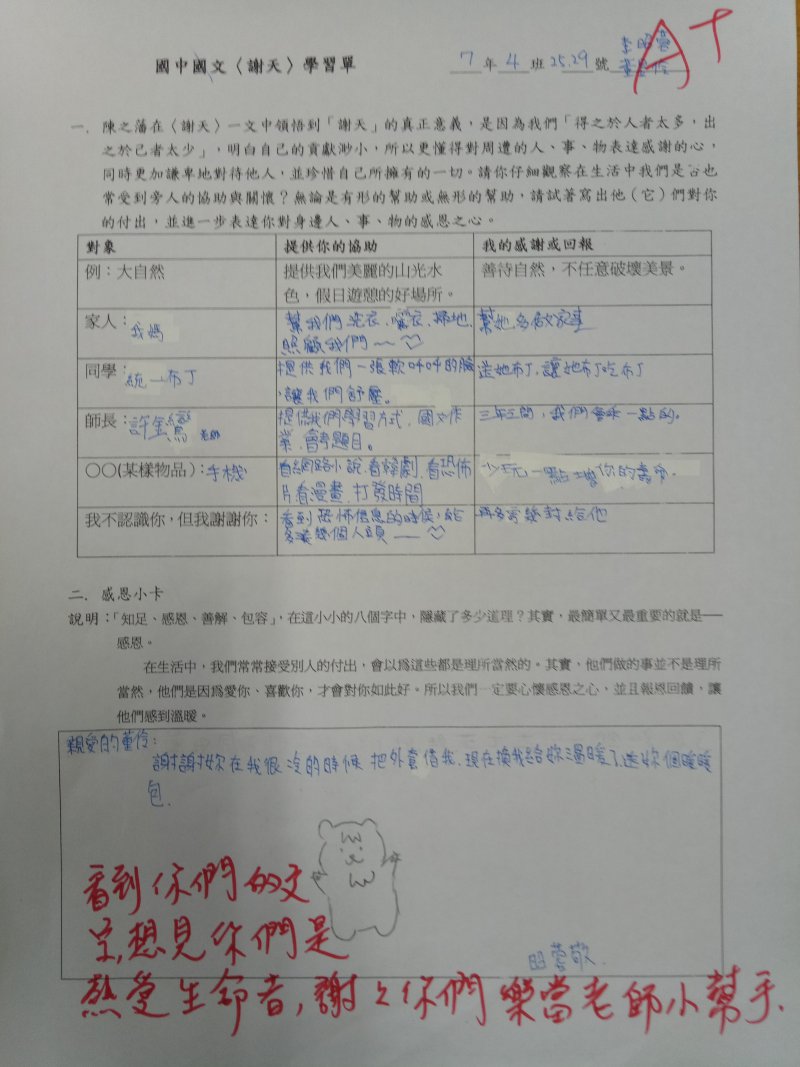 國中國文〈謝天〉學習單
7年4班25.29號
A+
一. 陳之藩在〈謝天〉一文中領悟到「謝天」的真正意義,是因為我們「得之於人者太多,出
之於己者太少」,明白自己的貢獻渺小,所以更懂得對周遭的人、事、物表達感謝的心,
同時更加謙卑地對待他人,並珍惜自己所擁有的一切。請你仔細觀察在生活中我們是否也
常受到旁人的協助與關懷?無論是有形的幫助或無形的幫助,請試著寫出他(它)們對你
的付出,並進一步表達你對身邊人、事、物的感恩之心。
對象 提供你的協助 我的感謝或回報
例:大自然 提供我們美麗的山光水 善待自然,不任意破壞美景。
色,假日遊憩的好場所。
家人:我媽 幫我們洗衣、曬衣、掃地、 幫她多做家事
照顧我們~~
同學:統一布丁 提供我們一張軟呼呼的臉 送她布丁,讓她布丁吃布丁
,讓我們舒壓。
師長:許金鸞老師 提供我們學習方式、國文作 三年三間,我們會乖一點的。
業、會考題目。
〇〇(某樣物品):手機 看網路小說、看韓劇、看恐怖 少玩一點增你的壽命。
片看漫畫、打發時間
我不認識你,但我謝謝你: 看到恐怖信息的時候,給 再多寄幾封給他
多幾個人頭
二. 感恩小卡
說明:「知足、感恩、善解、包容」,在這小小的八個字中,隱藏了多少道理?其實,最簡單又最重要的就是──
感恩。
在生活中,我們常常接受別人的付出,會以為這些都是理所當然的。其實,他們做的事並不是理所
當然,他們是因為愛你、喜歡你,才會對你如此好。所以我們一定要心懷感恩之心,並且報恩回饋,讓
他們感到溫暖。
親愛的董伶:
謝謝妳在我很冷的時候把外套借我,現在換我給妳溫暖了,送妳個暖暖
包.
看到你們的文
字,想見你們是
熱愛生命者,謝々你們樂當老師小幫手.